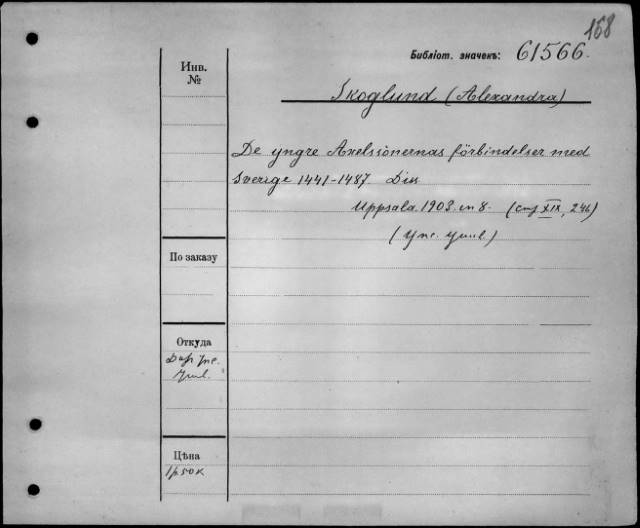 168
Библіот. значекъ: 61566.
Инв.
№
Skoglund (Alexandra)
De yngre Axelssönernas förbindelser med
Sverige 1441-1487. Diss
Uppsala. 1903. in 8. (стр XIX, 246)
(Упс. унив.)
По заказу
Откуда
Даръ Упс.
Унив.
Цѣна
1р50к